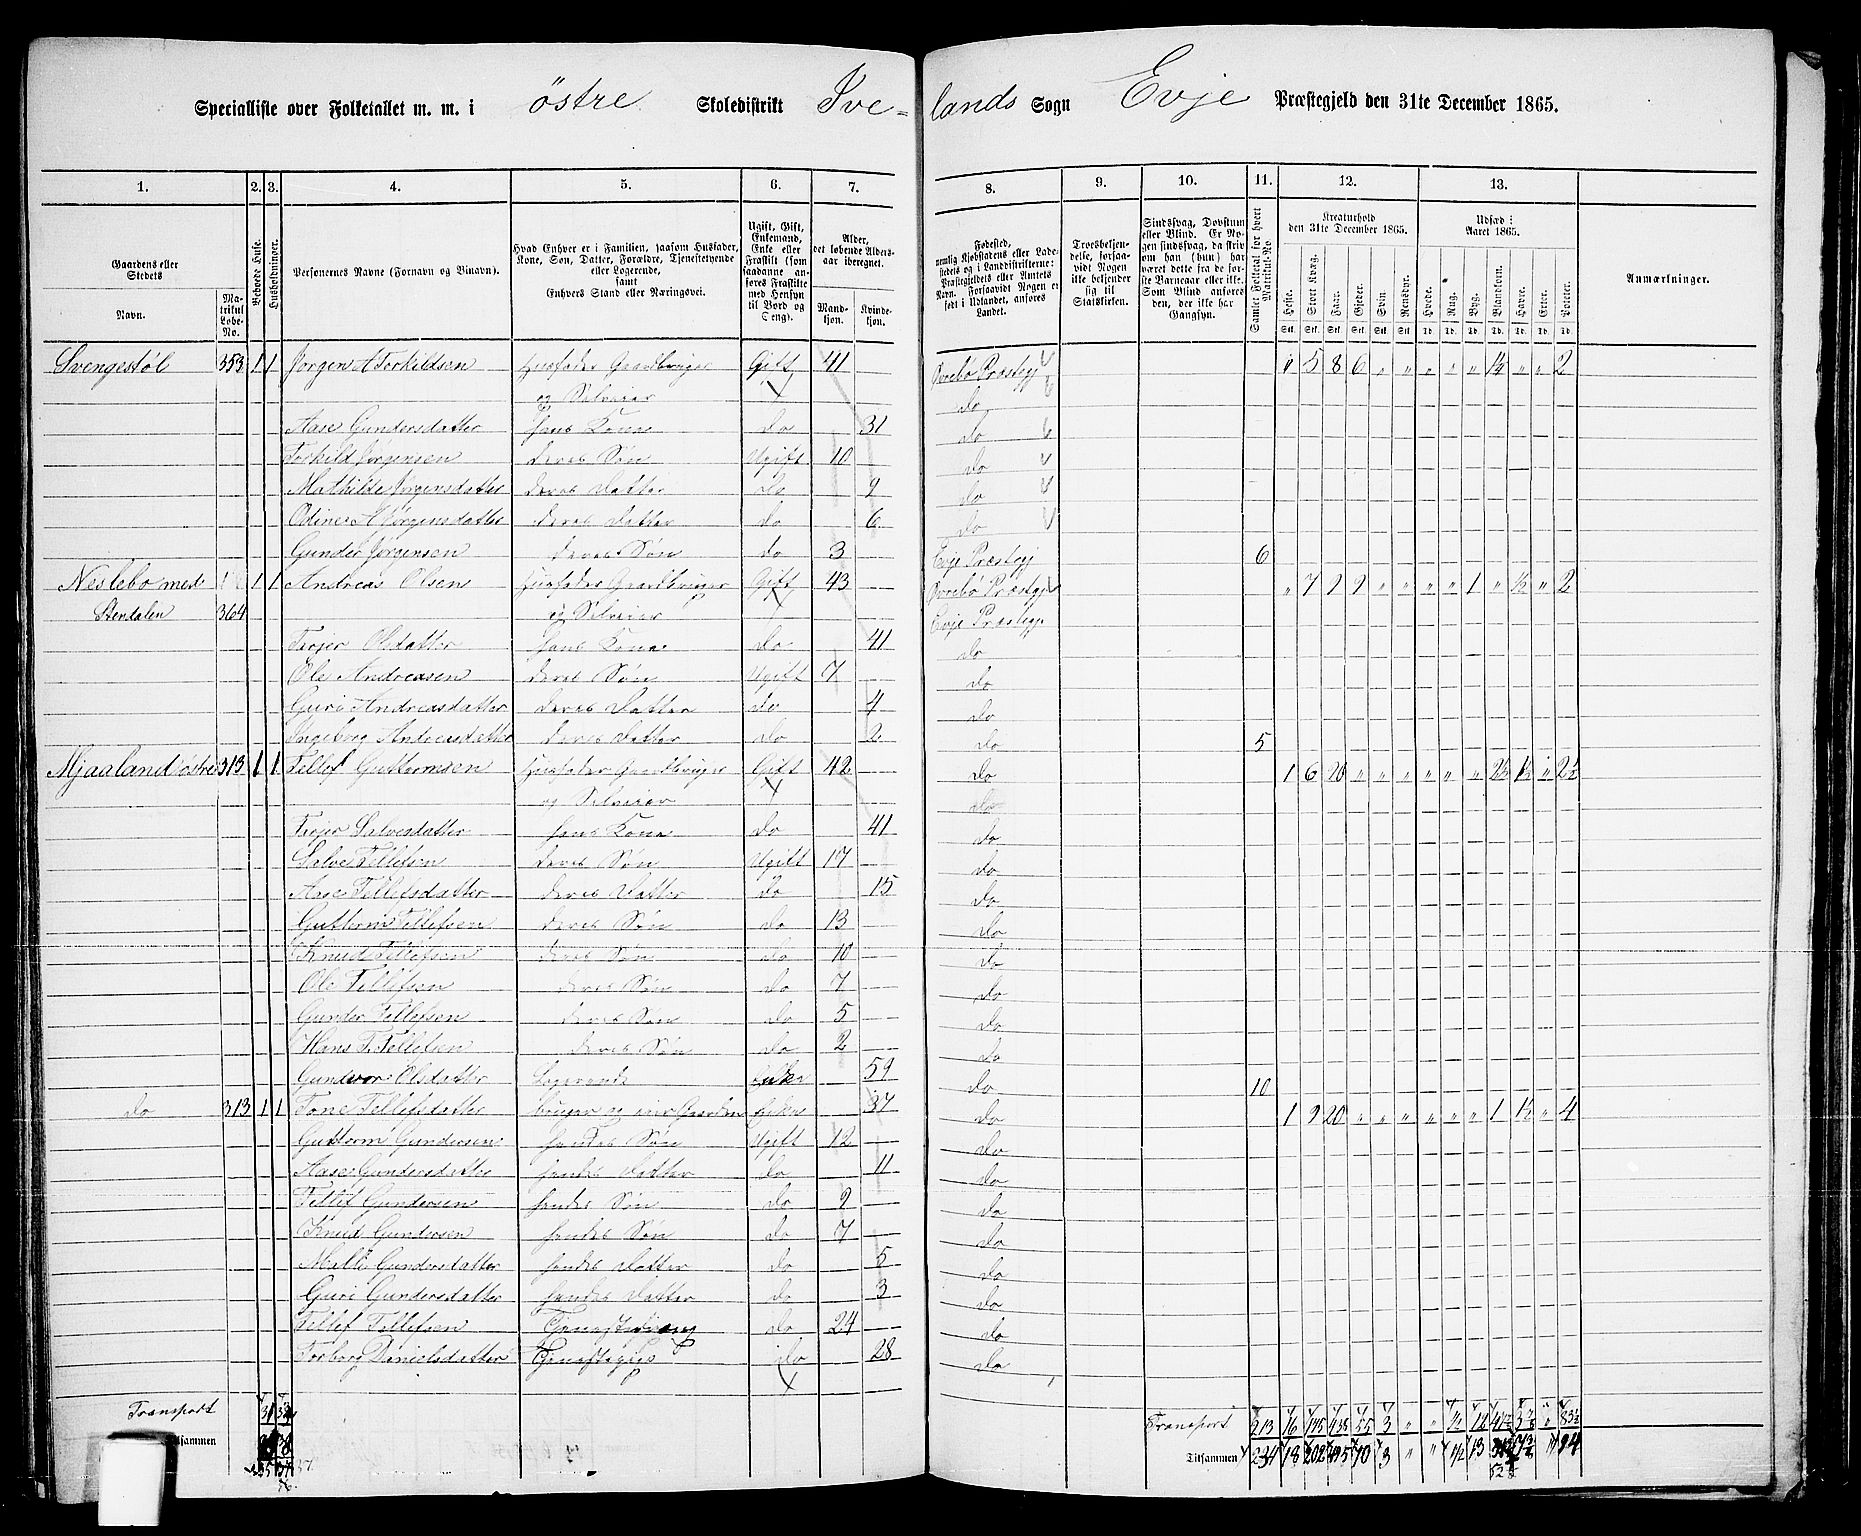 Specialliste over Folketallet m. m. i østre Skoledistrikt Ive-lands Sogn Evje Præstegjeld den 31te December 1865.
1. 2. 3. 4. 5. 6. 7. 8. 9. 10. 11. 12. 13.
Gaardens eller Stedets
Navn.
Matrikul Løbe-No.
Beboede Huse.
Husholdninger.
Personernes Navne (Fornavn og Tilnavn).
Hvad Enhver er i Familien, saasom Husfader, Kone, Søn, Datter, Forældre, Tjenestetyende eller Logerende, samt Enhvers Stand eller Næringsvei.
Ugift, Gift, Enkemand, Enke eller Fraskilt
Alder, det løbende Aldersaar iberegnet.
Mandkjøn. Kvindekjøn.
Fødested,
Troesbekjendelse, forsaavidt Nogen ikke bekjender sig til Statskirken.
Sindssvag, Døvstum eller Blind.
Samlet Folketal for hvert Matrikul-No.
Kreaturhold den 31te December 1865.
Udsæd i Aaret 1865.
Anmærkninger.
Heste. Stort Kvæg. Faar. Gjeder. Svin. Rensdyr. Hvede. Rug. Byg. Blandkorn. Havre. Erter. Poteter.
Svengestøl 353 1 1 Jørgen A Torkildsen Husfader Gaardbruger Gift 41 Øvrebø Præstegj " 5 8 6 " " " " " 1¼ " " 2
og Selveier do
Aase Gundersdatter hans Kone do 31 do
Torkild Jørgensen deres Søn Ugift 10 do
Mathilde Jørgensdatter deres Datter do 9 do
Odine A Jørgensdatter deres Datter do 6 do
Gunder Jørgensen deres Søn do 3 Evje Præstegj 6
Neslebø med 1 1 Andreas Olsen Husfader Gaardbruger Gift 43 Øvrebø Præstegj " 7 9 9 " " " " 1 " ½ " 2
Stendalen 364 og Selveier Evje Præstegj
Terjer Olsdatter hans Kone do 41 do
Ole Andreasen deres Søn Ugift 7 do
Guri Andreasdatter deres Datter do 4 do
Ingeborg Andreasdatter deres Datter do 2 do 5
Mjaaland østre 313 1 1 Tellef Guttormsen Husfader Gaardbruger Gift 42 do 1 6 20 " " " " " " 2½ ½ " 2½
og Selveier do
Terjer Salvesdatter hans Kone do 41 do
Salve Tellefsen deres Søn Ugift 17 do
Aase Tellefsdatter deres Datter do 15 do
Guttorm Tellefsen deres Søn do 13 do
Knud Tellefsen deres Søn do 10 do
Ole Tellefsen deres Søn do 7 do
Gunder Tellefsen deres Søn do 5 do
Hans T. Tellefsen deres Søn do 2 do
Gundvor Olsdatter Logerende Enke 59 do 10
do 313 1 1 Tone Tellefsdatter bruger og eier Gaarden Enke 37 do 1 9 20 " " " " " " 1 ½ " 4
Guttorm Gundersen hendes Søn Ugift 12 do
Aase Gundersdatter hendes Datter do 11 do
Tellef Gundersen hendes Søn do 9 do
Knud Gundersen hendes Søn do 7 do
Malli Gundersdatter hendes Datter do 5 do
Guri Gundersdatter hendes Datter do 3 do
Tellef Tellefsen Tjenestedreng do 24 do
Torborg Danielsdatter Tjenestepige do 28 do
Transport Transport 213 16 175 438 55 3 " "
Tilsammen Tilsammen 234 18 202 495 70 3 " " 94